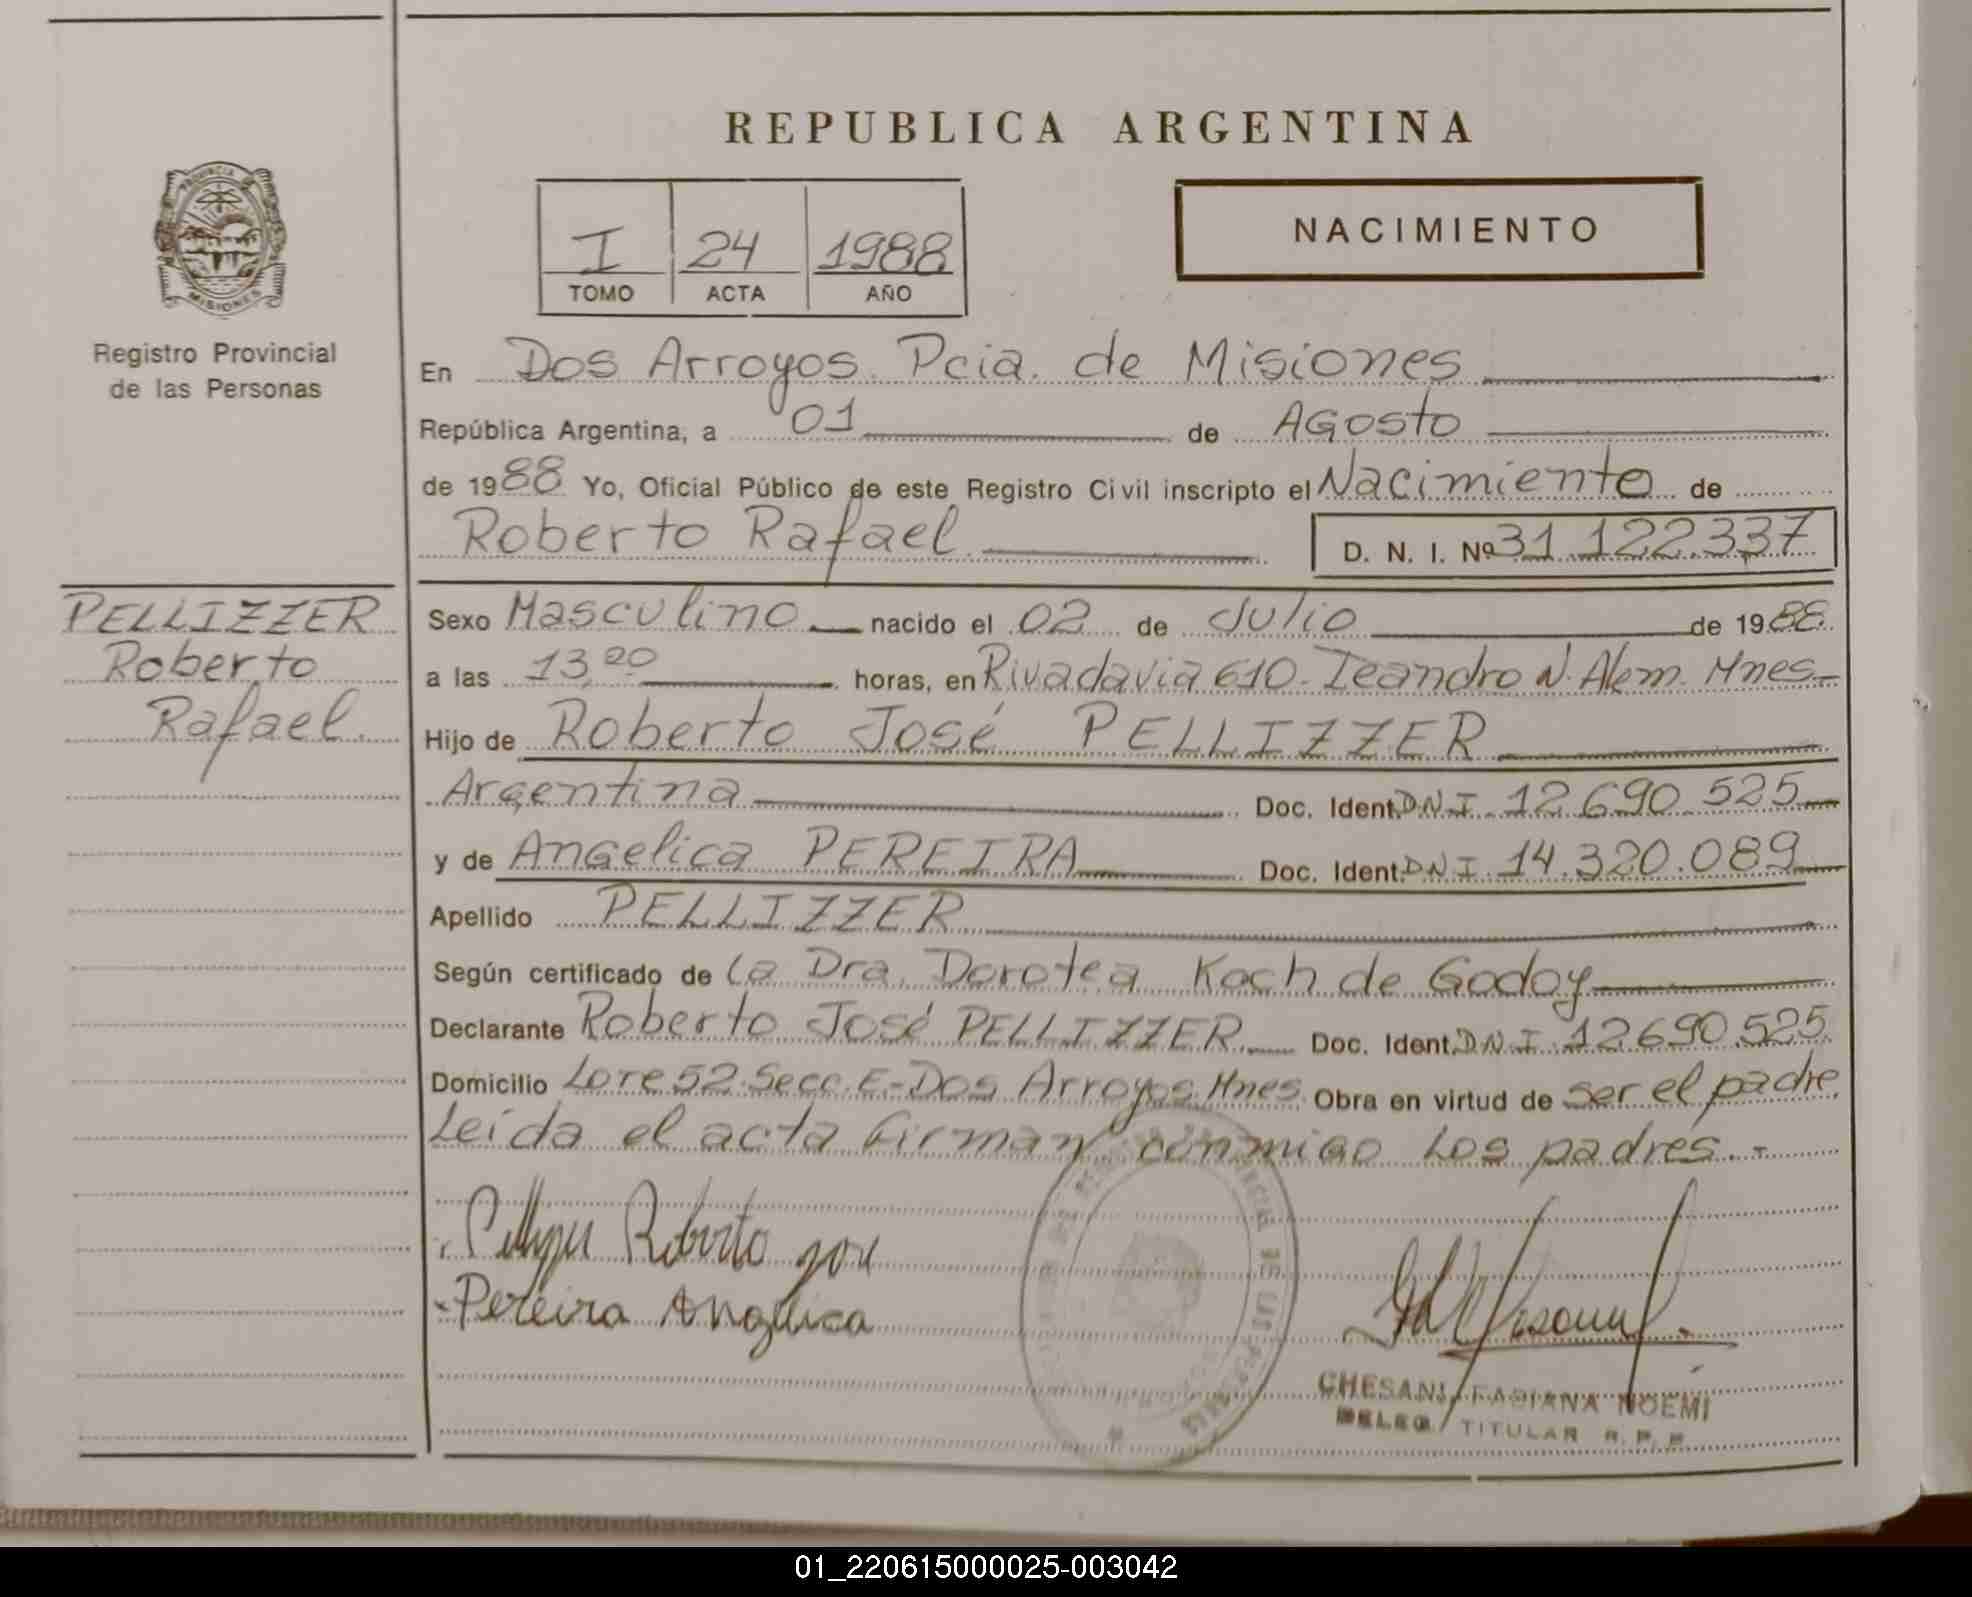 REPUBLICA ARGENTINA
PROVINCIA
MISIONES
Registro Provincial
de las Personas
I 24 1988
TOMO ACTA AÑO
NACIMIENTO
En Dos Arroyos Pcia. de Misiones
República Argentina, a 01 de Agosto
de 1988 Yo, Oficial Público de este Registro Civil inscripto el Nacimiento de
Roberto Rafael D. N. I. Nº 31.122.337
PELLIZZER
Roberto
Rafael.
Sexo Masculino nacido el 02 de Julio de 1988
a las 13,20 horas, en Rivadavia 610- Leandro N. Alem. Mnes-
Hijo de Roberto José PELLIZZER
Argentina Doc. Ident. DNI 12.690.525
y de Angelica PEREIRA Doc. Ident. DNI 14.320.089
Apellido PELLIZZER
Según certificado de la Dra. Dorotea Koch de Godoy
Declarante Roberto José PELLIZZER Doc. Ident. DNI 12.690.525
Domicilio Lote 52. Secc. E.- Dos Arroyos Mnes Obra en virtud de ser el padre
Leida el acta firman conmigo los padres.-
Roberto José
Pereira Angelica
CHESANI, FABIANA NOEMI
DELEG. TITULAR R. P. P.
01_220615000025-003042